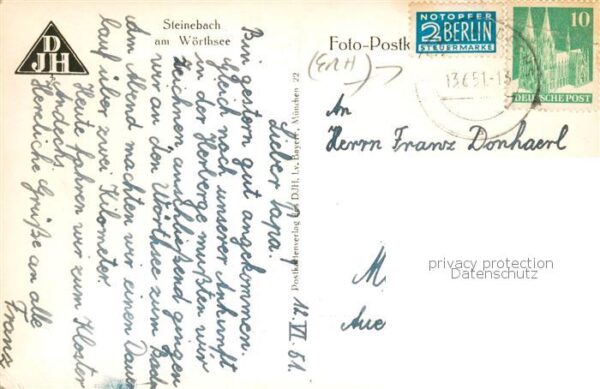 DJH
Steinebach
am Wörthsee
Foto-Postk
NOTOPFER
2 BERLIN
STEUERMARKE
10
DEUTSCHE POST
13.6.51-13
(ERH)
An
Herrn Franz Donhaerl
M
Aue
privacy protection
Datenschutz
Postkartenverlag DJH, Lv. Bayern, München 22
12. VI. 51.
Lieber Papa!
Bin gestern gut angekommen.
Gleich nach unserer Ankunft
in der Herberge mußten wir
zeichnen, anschließend gingen
wir an den Wörthsee zum Bad
Am Abend machten wir einen Dau
lauf über zwei Kilometer.
Heute fahren wir zum Kloster
Andechs.
Herzliche Grüße an alle
Franz